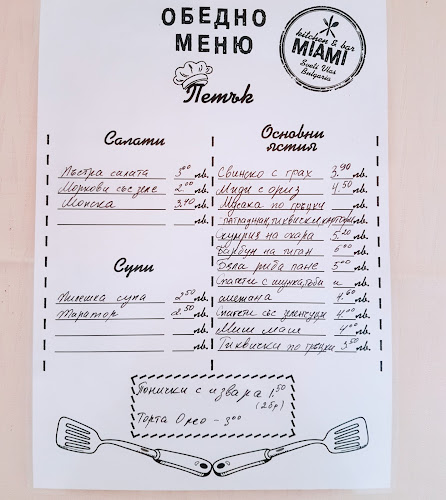 ОБЕДНО
МЕНЮ
kitchen & bar
MIAMI
Sveti Vlas
Bulgaria
Петък
Салати
Пъстра салата 3.00 лв.
Моркови със зеле 2.00 лв.
Шопска 3.40 лв.
лв.
Супи
Пилешка супа 2.50 лв.
Таратор 2.50 лв.
лв.
лв.
Основни
ястия
Свинско с грах 3.90 лв.
Миди с ориз 4.50 лв.
Мусака по гръцки лв.
патладжан, тиквички, картофи лв.
Скумрия на скара 5.20 лв.
Барбун на тиган 6.00 лв.
Бяла риба пане 5.00 лв.
Спагети с шунка, гъби и лв.
сметана 4.60 лв.
Спагети със 4.00 лв.
Миш маш 4.00 лв.
Тиквички по гръцки 3.50 лв.
Понички с извара 1.50
(2бр)
Торта Орео - 3.00